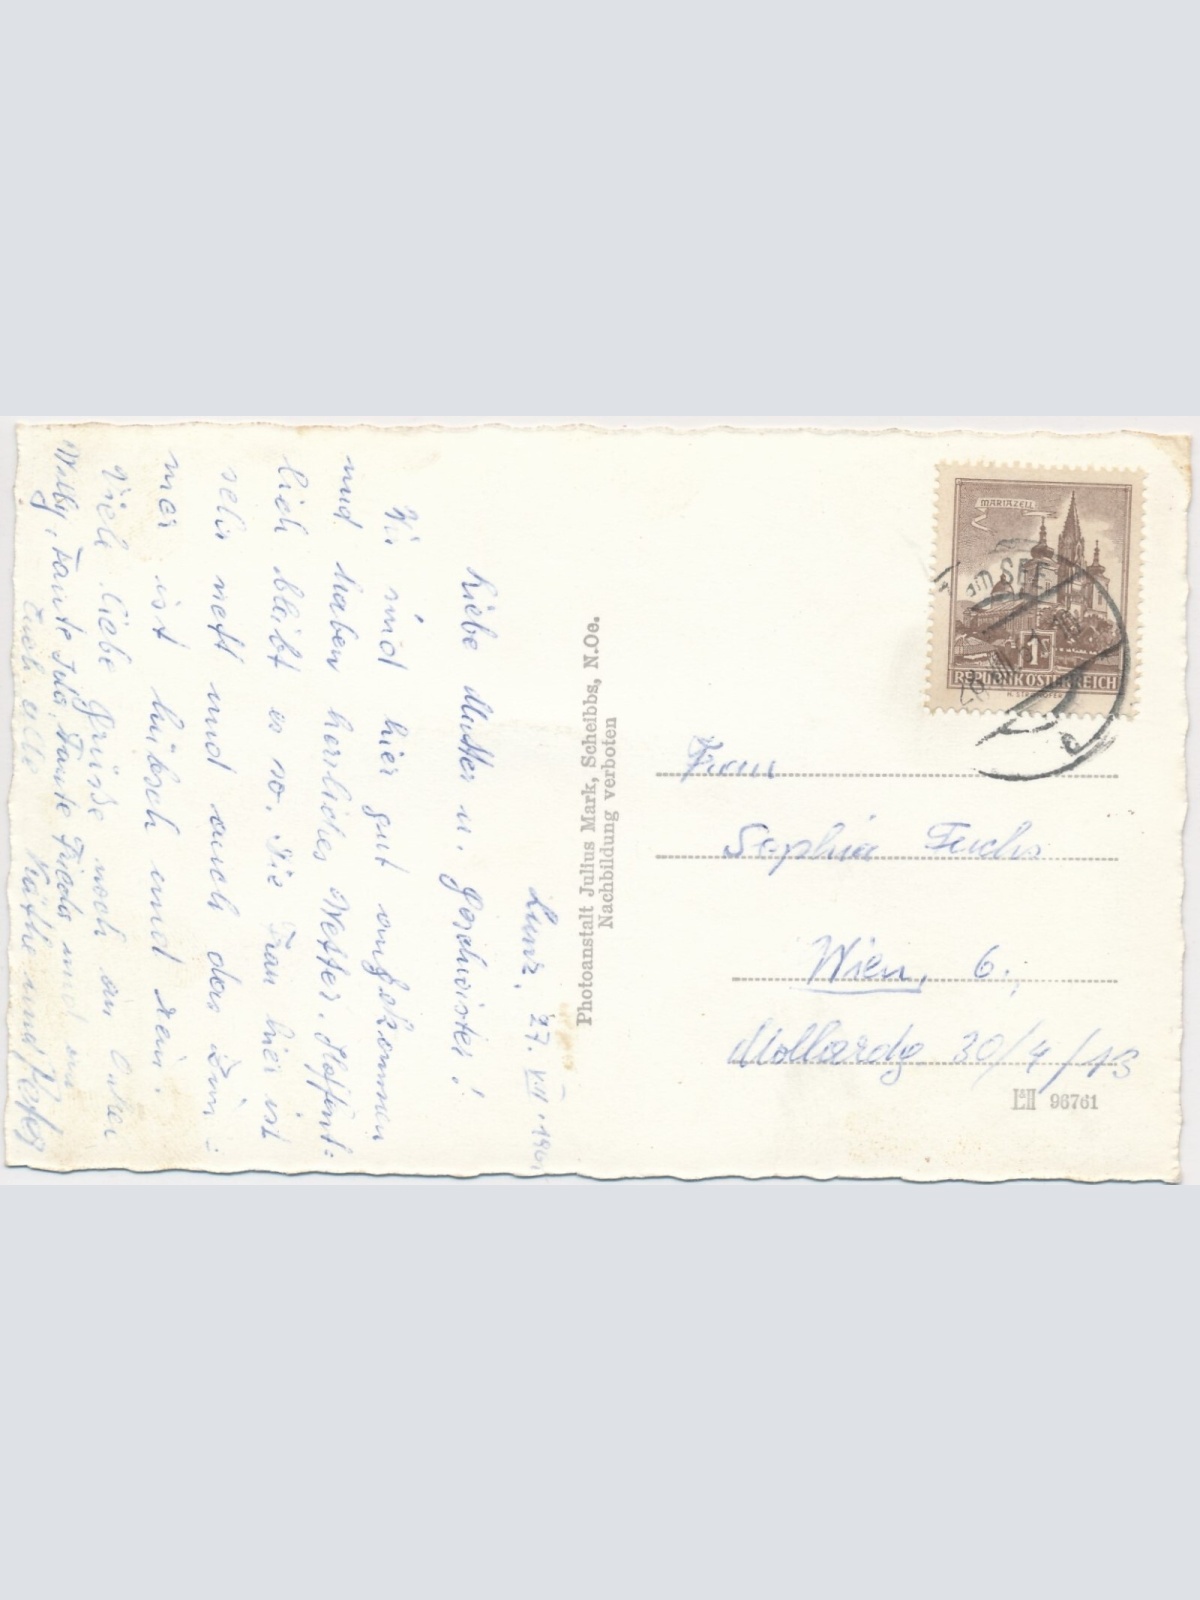 Lunz, 27. VII. 1961
Liebe Mutter u. Geschwister!
Wir sind hier gut angekommen
und haben herrliches Wetter. Hoffent-
lich bleibt es so. Die Frau hier ist
sehr nett und auch das Zim-
mer ist hübsch und rein.
Viele liebe Grüsse noch an Onkel
Willy, Tante Ida, Tante Frieda und an
Euch alle Käthe und
Photoanstalt Julius Mark, Scheibbs, N.Oe.
Nachbildung verboten
MARIAZELL
1S
REPUBLIK ÖSTERREICH
am SEE
28. VII.
c
Frau
Sophia Fuchs
Wien, 6.
Mollardg 30/4/13
96761